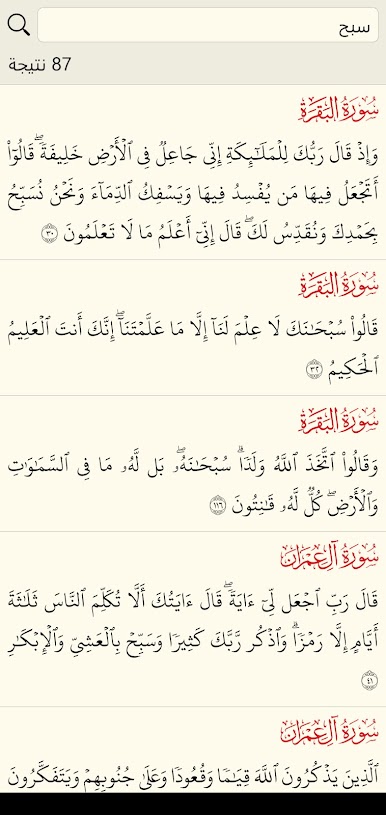 سبح
87 نتيجة
سُورَةُ البَقَرَةِ
وَإِذۡ قَالَ رَبُّكَ لِلۡمَلَٰٓئِكَةِ إِنِّي جَاعِلٞ فِي ٱلۡأَرۡضِ خَلِيفَةٗۖ قَالُوٓاْ
أَتَجۡعَلُ فِيهَا مَن يُفۡسِدُ فِيهَا وَيَسۡفِكُ ٱلدِّمَآءَ وَنَحۡنُ نُسَبِّحُ
بِحَمۡدِكَ وَنُقَدِّسُ لَكَۖ قَالَ إِنِّيٓ أَعۡلَمُ مَا لَا تَعۡلَمُونَ ٣٠
سُورَةُ البَقَرَةِ
قَالُواْ سُبۡحَٰنَكَ لَا عِلۡمَ لَنَآ إِلَّا مَا عَلَّمۡتَنَآۖ إِنَّكَ أَنتَ ٱلۡعَلِيمُ
ٱلۡحَكِيمُ ٣٢
سُورَةُ البَقَرَةِ
وَقَالُواْ ٱتَّخَذَ ٱللَّهُ وَلَدٗاۗ سُبۡحَٰنَهُۥۖ بَل لَّهُۥ مَا فِي ٱلسَّمَٰوَٰتِ
وَٱلۡأَرۡضِۖ كُلّٞ لَّهُۥ قَٰنِتُونَ ١١٦
سُورَةُ آلِ عِمۡرَانَ
قَالَ رَبِّ ٱجۡعَل لِّيٓ ءَايَةٗۖ قَالَ ءَايَتُكَ أَلَّا تُكَلِّمَ ٱلنَّاسَ ثَلَٰثَةَ
أَيَّامٍ إِلَّا رَمۡزٗاۗ وَٱذۡكُر رَّبَّكَ كَثِيرٗا وَسَبِّحۡ بِٱلۡعَشِيِّ وَٱلۡإِبۡكَٰرِ
٤١
سُورَةُ آلِ عِمۡرَانَ
ٱلَّذِينَ يَذۡكُرُونَ ٱللَّهَ قِيَٰمٗا وَقُعُودٗا وَعَلَىٰ جُنُوبِهِمۡ وَيَتَفَكَّرُونَ